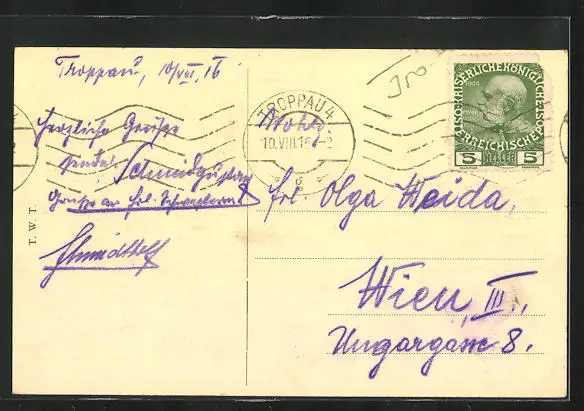 Troppau, 10/VIII. 16
Herzliche Grüße
sendet
Schmidgustav
Grüsse an Frl. Schwestern
T. W. T.
TROPPAU 4
10.VIII.16
KAISERLICHE KÖNIGLICHE
ÖSTERREICHISCHE POST
1908
5 HELLER 5
Wohlg.
Frl. Olga Weida,
Wien, III.,
Ungargasse 8.